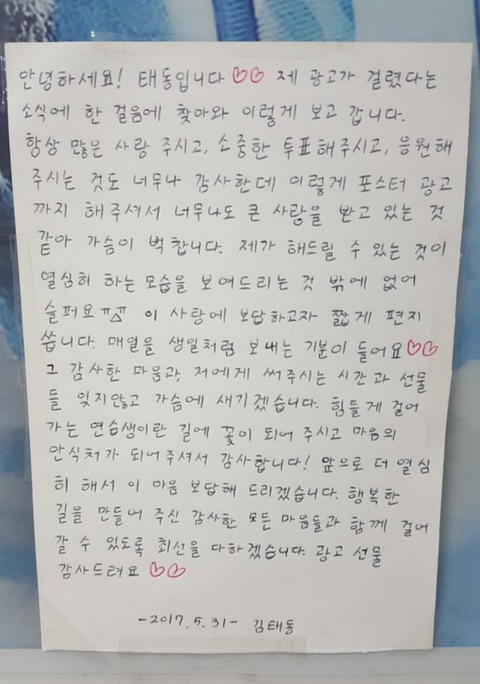 안녕하세요! 태동입니다♡♡ 제 광고가 걸렸다는
소식에 한 걸음에 찾아와 이렇게 보고 갑니다.
항상 많은 사랑 주시고, 소중한 투표해주시고, 응원해
주시는 것도 너무나 감사한데 이렇게 포스터 광고
까지 해주셔서 너무나도 큰 사랑을 받고 있는 것
같아 가슴이 벅찹니다. 제가 해드릴 수 있는 것이
열심히 하는 모습을 보여드리는 것 밖에 없어
슬퍼요ㅠㅠ 이 사랑에 보답하고자 짧게 편지
씁니다. 매일을 생일처럼 보내는 기분이 들어요♡♡
그 감사한 마음과, 저에게 써주시는 시간과 선물
들 잊지않고 가슴에 새기겠습니다. 힘들게 걸어
가는 연습생이란 길에 꽃이 되어 주시고 마음의
안식처가 되어주셔서 감사합니다! 앞으로 더 열심
히 해서 이 마음 보답해 드리겠습니다. 행복한
길을 만들어 주신 감사한 모든 마음들과 함께 걸어
갈 수 있도록 최선을 다하겠습니다. 광고 선물
감사드려요 ♡♡
-2017.5.31- 김태동